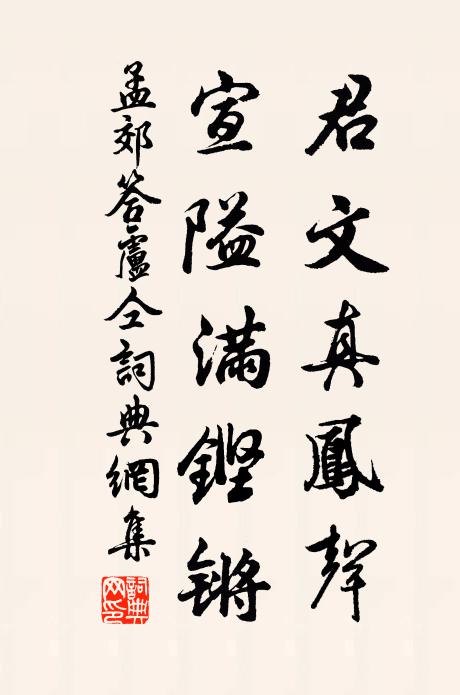 君文真鳳聲
宣隘滿鏗鏘
孟郊答盧仝詞典網集
詞典网印